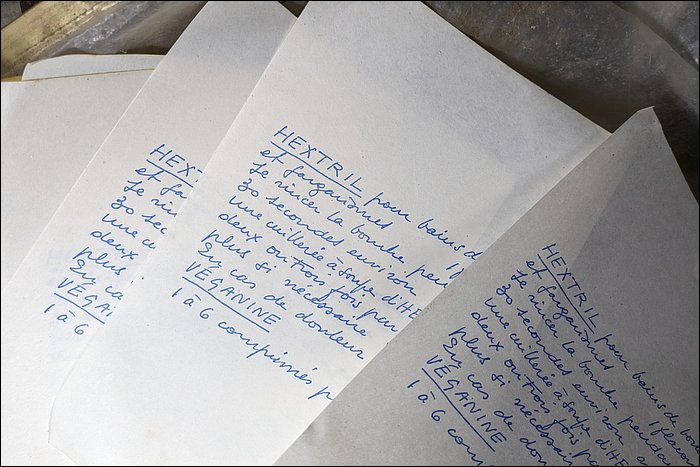 HEXT
et ga
Se rin
30 sec
Une cu
deux
plus
En ca
VÉGA
1 à 6
HEXTRIL pour bains d
et gargarismes 1 f
Se rincer la bouche pen
30 secondes environ
Une cuillerée à soupe d'HE
deux ou trois fois par
plus si nécessaire
En cas de douleur
VÉGANINE
1 à 6 comprimés p
HEXTRIL pour bains de bou
et gargarismes 1 flacon
Se rincer la bouche penda
30 secondes environ a
Une cuillerée à soupe d'H
deux ou trois fois pa
plus si nécessai
En cas de do
VÉGANINE
1 à 6 com